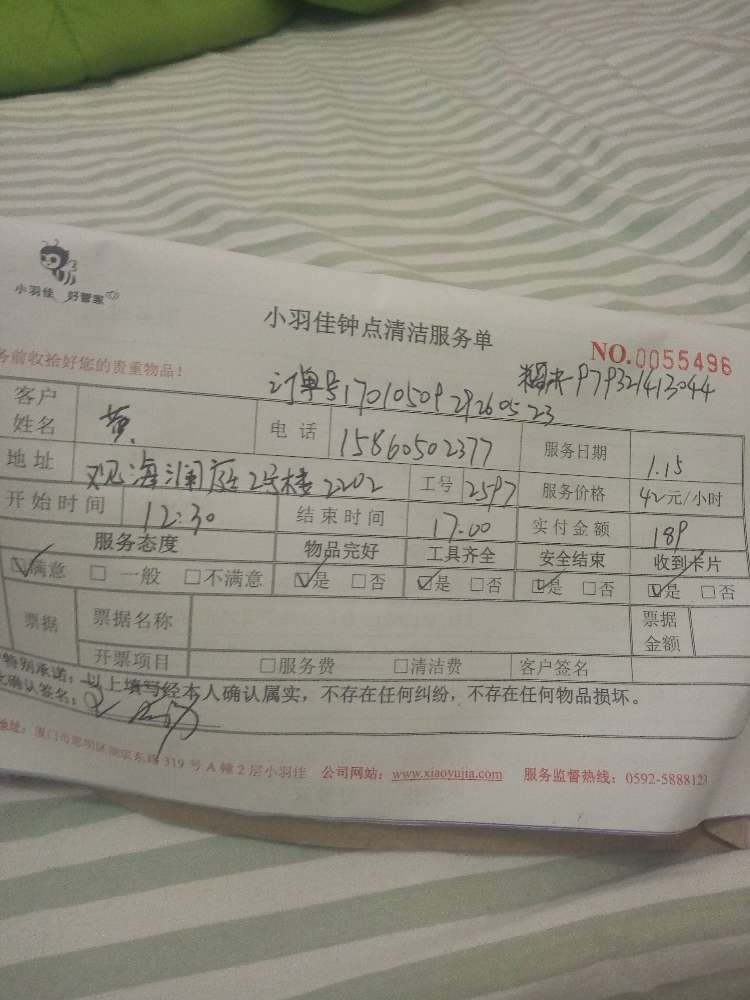 小羽佳 好管家
小羽佳钟点清洁服务单
NO.0055496
务前收拾好您的贵重物品!
订单号17010509292605 23
979321413044
客户姓名 黄 电话 15860502377 服务日期 1.15
地址 观海澜庭2号楼2202 工号 2597 服务价格 42元/小时
开始时间 12:30 结束时间 17:00 实付金额 189
服务态度 物品完好 工具齐全 安全结束 收到卡片
满意 一般 不满意 是 否 是 否 是 否 是 否
票据 票据名称 票据金额
开票项目 服务费 清洁费 客户签名
特别承诺:以上填写经本人确认属实,不存在任何纠纷,不存在任何物品损坏。
确认签名:
地址:厦门市思明区 东路319号A幢2层小羽佳 公司网站:www.xiaoyujia.com 服务监督热线:0592-5888123